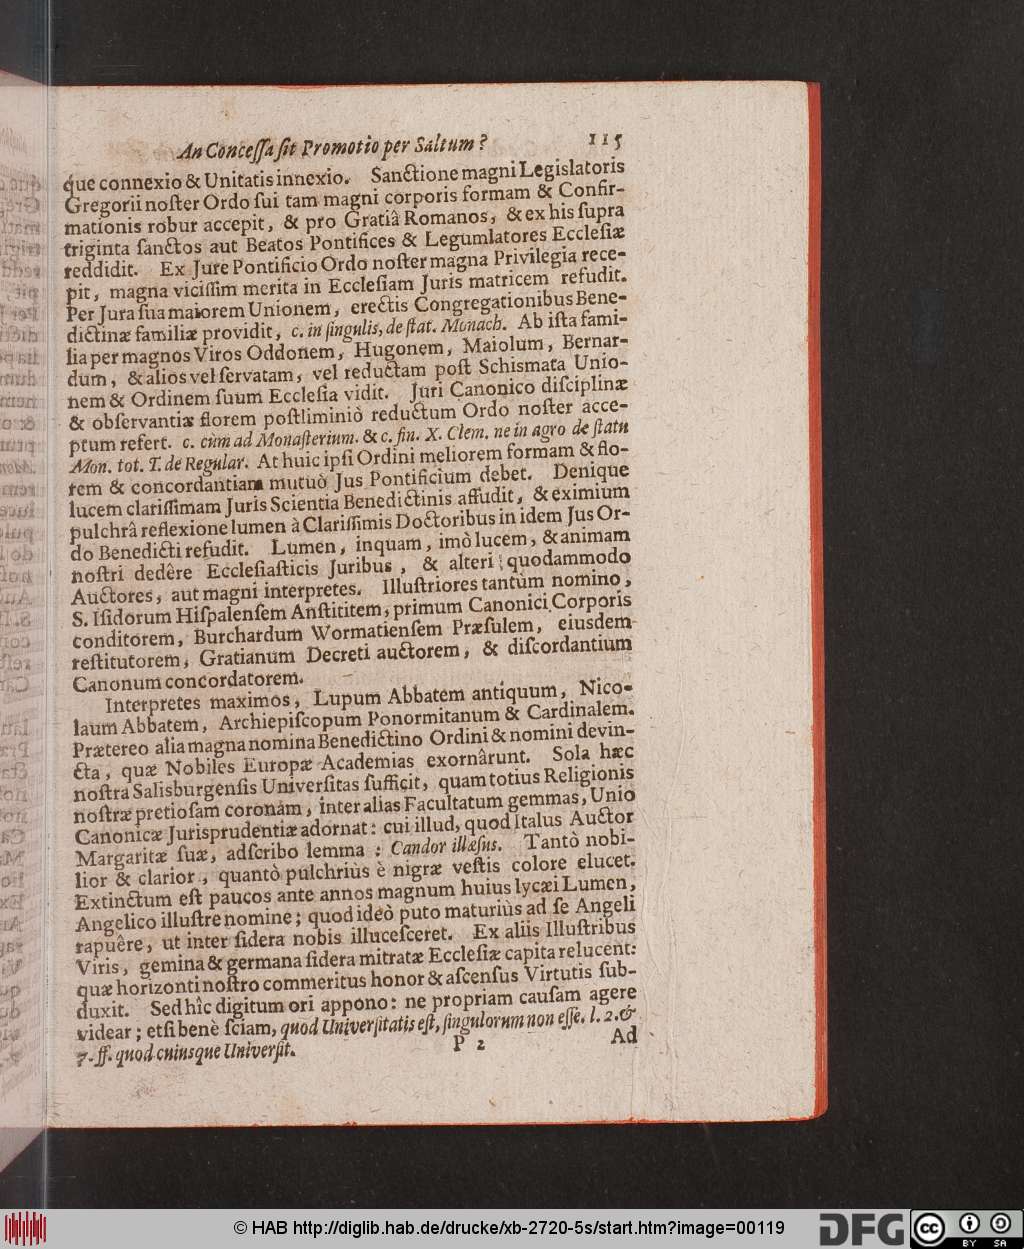 An Conceſſa ſit Promotio per Saltum? 115
que connexio & Unitatis innexio. Sanctione magni Legislatoris
Gregorii noſter Ordo ſui tam magni corporis formam & Confir-
mationis robur accepit, & pro Gratiâ Romanos, & ex his ſupra
triginta ſanctos aut Beatos Pontifices & Legumlatores Eccleſiæ
reddidit. Ex Jure Pontificio Ordo noſter magna Privilegia rece-
pit, magna viciſſim merita in Eccleſiam Juris matricem refudit.
Per Jura ſua maiorem Unionem, erectis Congregationibus Bene-
dictinæ familiæ providit, c. in ſingulis, de ſtat. Monach. Ab iſta fami-
lia per magnos Viros Oddonem, Hugonem, Maiolum, Bernar-
dum, & alios vel ſervatam, vel reductam poſt Schismata Unio-
nem & Ordinem ſuum Eccleſia vidit. Juri Canonico diſciplinæ
& obſervantiæ florem poſtliminiò reductum Ordo noſter acce-
ptum refert. c. cùm ad Monaſterium. & c. fin. X. Clem. ne in agro de ſtatu
Mon. tot. T. de Regular. At huic ipſi Ordini meliorem formam & flo-
rem & concordantiam mutuò Jus Pontificium debet. Denique
lucem clariſſimam Juris Scientia Benedictinis affudit, & eximium
pulchrâ reflexione lumen à Clariſſimis Doctoribus in idem Jus Or-
do Benedicti refudit. Lumen, inquam, imò lucem, & animam
noſtri dedêre Eccleſiaſticis Juribus, & alteri quodammodo
Auctores, aut magni interpretes. Illuſtriores tantùm nomino,
S. Iſidorum Hiſpalenſem Anſtititem, primum Canonici Corporis
conditorem, Burchardum Wormatienſem Præſulem, eiusdem
reſtitutorem, Gratianum Decreti auctorem, & diſcordantium
Canonum concordatorem.
Interpretes maximos, Lupum Abbatem antiquum, Nico-
laum Abbatem, Archiepiſcopum Ponormitanum & Cardinalem.
Prætereo alia magna nomina Benedictino Ordini & nomini devin-
cta, quæ Nobiles Europæ Academias exornârunt. Sola hæc
noſtra Salisburgenſis Univerſitas ſufficit, quam totius Religionis
noſtræ pretioſam coronam, inter alias Facultatum gemmas, Unio
Canonicæ Jurisprudentiæ adornat: cui illud, quod Italus Auctor
Margaritæ ſuæ, adſcribo lemma : Candor illæſus. Tantò nobi-
lior & clarior, quantò pulchriùs è nigræ veſtis colore elucet.
Extinctum eſt paucos ante annos magnum huius lycæi Lumen,
Angelico illuſtre nomine; quod ideò puto maturiùs ad ſe Angeli
rapuêre, ut inter ſidera nobis illuceſceret. Ex aliis Illuſtribus
Viris, gemina & germana ſidera mitratæ Eccleſiæ capita relucent:
quæ horizonti noſtro commeritus honor & aſcenſus Virtutis ſub-
duxit. Sed hîc digitum ori appono: ne propriam cauſam agere
videar; etſi benè ſciam, quod Univerſitatis eſt, ſingulorum non eſſe. l. 2. &
7. ff. quod cuiusque Univerſit.
P 2 Ad
© HAB http://diglib.hab.de/drucke/xb-2720-5s/start.htm?image=00119
DFG
cc BY SA